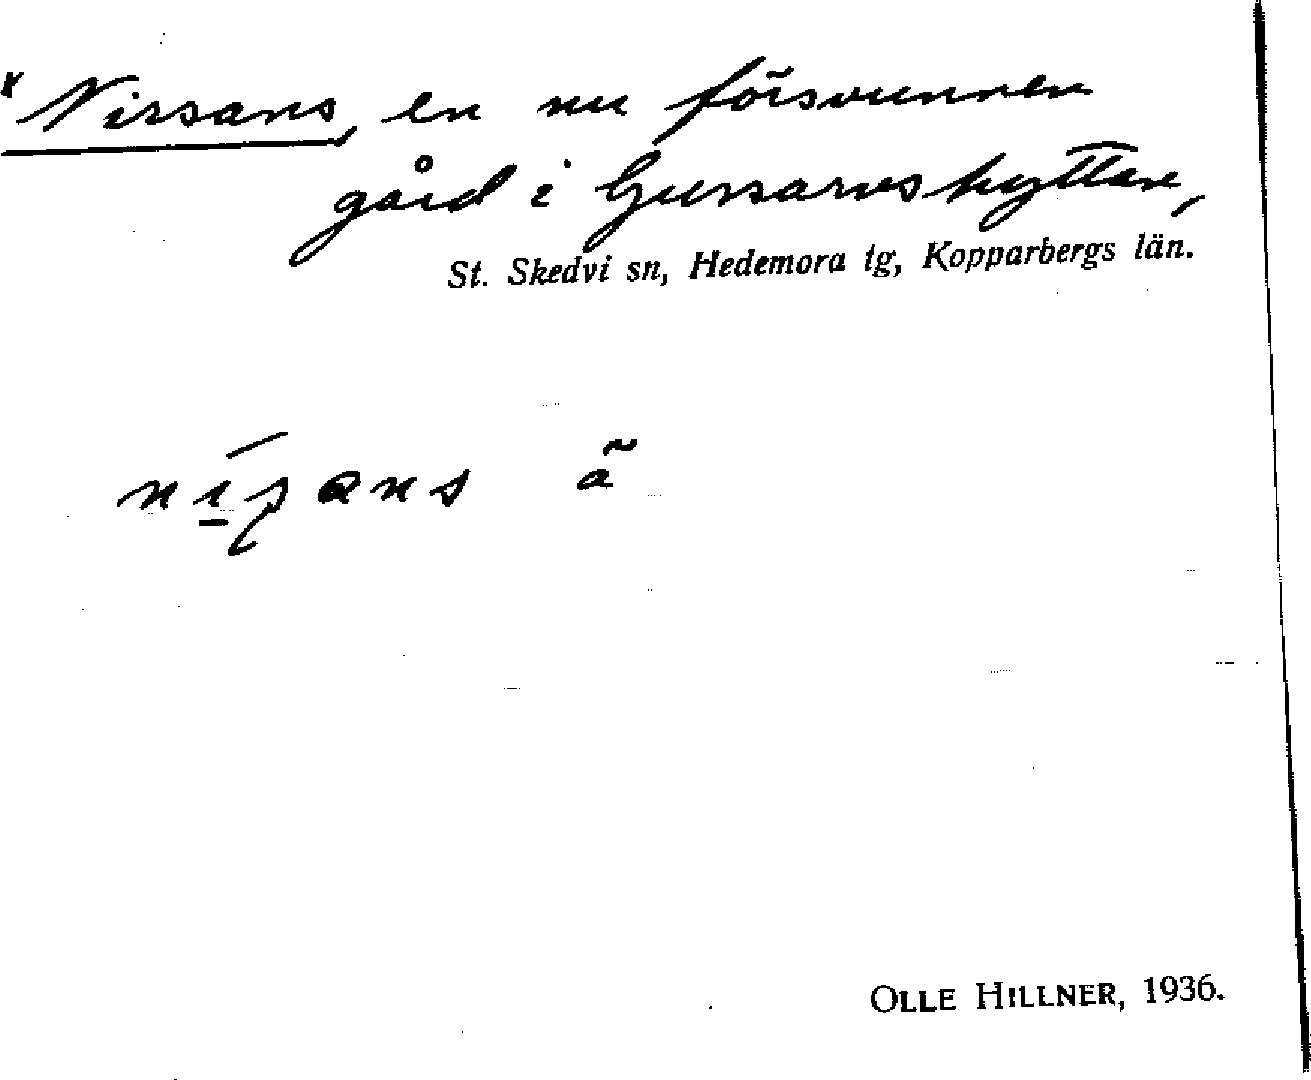 * Nissans, en nu försvunnen
gård i Gussarvshyttan,
St. Skedvi sn, Hedemora tg, Kopparbergs län.
OLLE HILLNER, 1936.